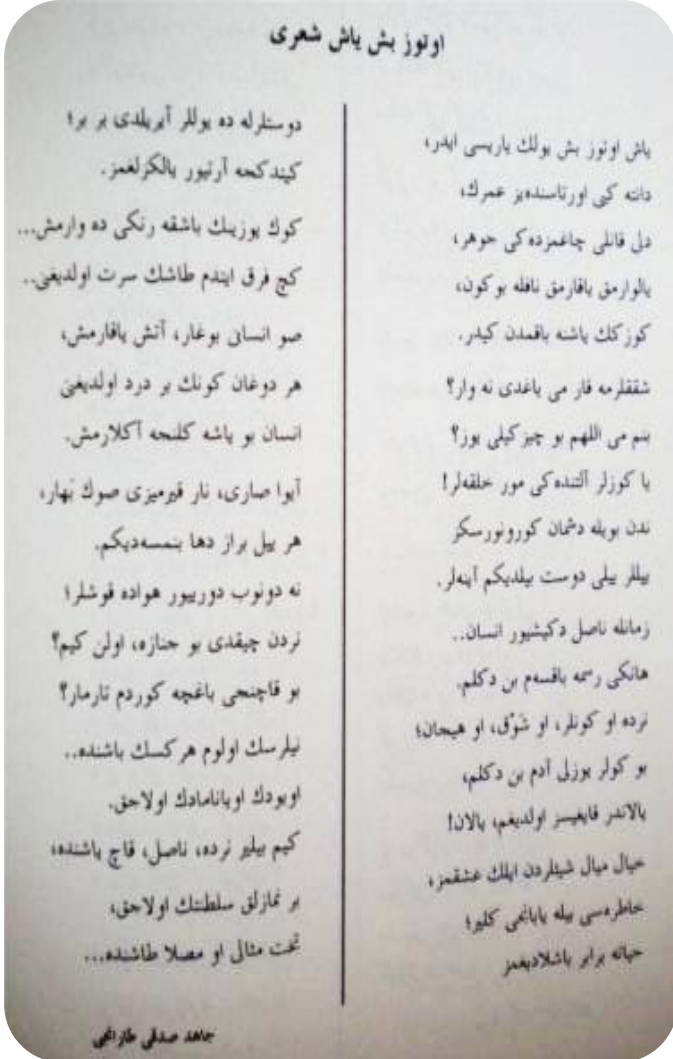 اوتوز بش ياش شعرى
ياش اوتوز بش يولك ياريسى ايدر،
دانته كبى اورتاسنده‌يز عمرك،
دل قانلى چاغمزده‌كى جوهر،
يالوارمق ياقارمق نافله بوكون،
كوزكك ياشنه باقمدن كيدر.
شققلرمه قار مى ياغدى نه وار؟
بنم مى اللهم بو چيزكيلى يوز؟
يا كوزلر آلتنده‌كى مور خلقه‌لر!
ندن بويله دشمان كورونورسكز
ييللر ييلى دوست بيلديكم آينه‌لر.
زمانله ناصل دكيشيور انسان..
هانكى رسمه باقسه‌م بن دكلم.
نرده او كونلر، او شوْق، او هيجان؛
بو كولر يوزلى آدم بن دكلم،
يالاندر قايغيسز اولديغم، يالان!
خيال ميال شيئلردن ايلك عشقمز،
خاطره‌سى بيله يابانجى كلير؛
حياته برابر باشلاديغمز
دوستلرله ده يوللر آيريلدى بر بر؛
كيتدكجه آرتيور يالكزلغمز.
كوك يوزينك باشقه رنكى ده وارمش...
كچ فرق ايتدم طاشك سرت اولديغنى..
صو انسانى بوغار، آتش ياقارمش،
هر دوغان كونك بر درد اولديغنى
انسان بو ياشه كلنجه آكلارمش.
آيوا صارى، نار قيرميزى صوك بَهار،
هر ييل براز دها بنمسه‌ديكم.
نه دونوب دورييور هواده قوشلر؛
نردن چيقدى بو جنازه، اولن كيم؟
بو قاچنجى باغچه كوردم تارمار؟
نيلرسك اولوم هركسك باشنده..
اويودك اويانامادك اولاجق.
كيم بيلير نرده، ناصل، قاچ ياشنده،
بر نمازلق سلطنتك اولاجق،
تخت مثالى او مصلا طاشنده...
جاهد صدقى طارانجى